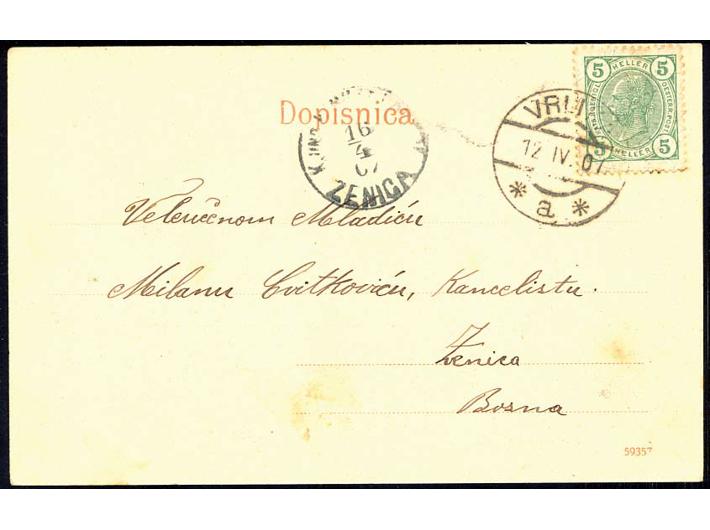 Dopisnica
16
4
07
ZENICA
5 HELLER 5
5 HELLER 5
12 IV. 07
* a *
Veleučnom Mladiću
Milanu Cvitkoviću, Kancelistu.
Zenica
Bosna
59357